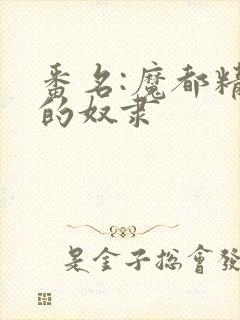 番名:魔都精
的奴隶
是金子总會發